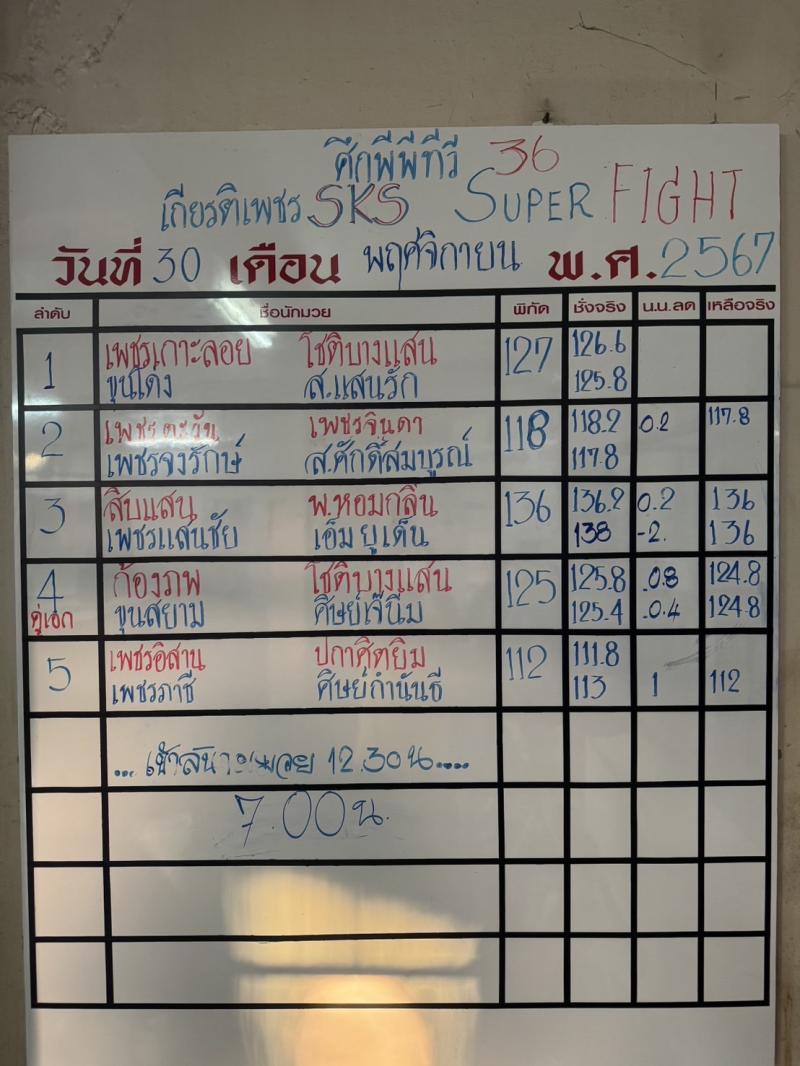 ศึกพีพีทีวี 36
เกียรติเพชร SKS SUPER FIGHT
วันที่ 30 เดือน พฤศจิกายน พ.ศ. 2567
ลำดับ ชื่อนักมวย พิกัด ชั่งจริง น.น.ลด เหลือจริง
1 เพชรเกาะลอย โชติบางแสน 127 126.6
ขุนโดง ส.แสนรัก 125.8
2 เพชรตะวัน เพชรจินดา 118 118.2 0.2 117.8
เพชรจงรักษ์ ส.ศักดิ์สมบูรณ์ 117.8
3 สิบแสน พ.หอมกลิ่น 136 136.2 0.2 136
เพชรแสนชัย เอ็มยูเด็น 138 -2. 136
4 ก้องภพ โชติบางแสน 125 125.8 .0.8 124.8
คู่เอก ขุนสยาม ศิษย์เจ๊นิม 125.4 .0.4 124.8
5 เพชรอิสาน ปกาศิตยิม 112 111.8
เพชรภาชี ศิษย์กำนันธี 113 1 112
... เข้าสนามมวย 12.30 น....
7.00 น.